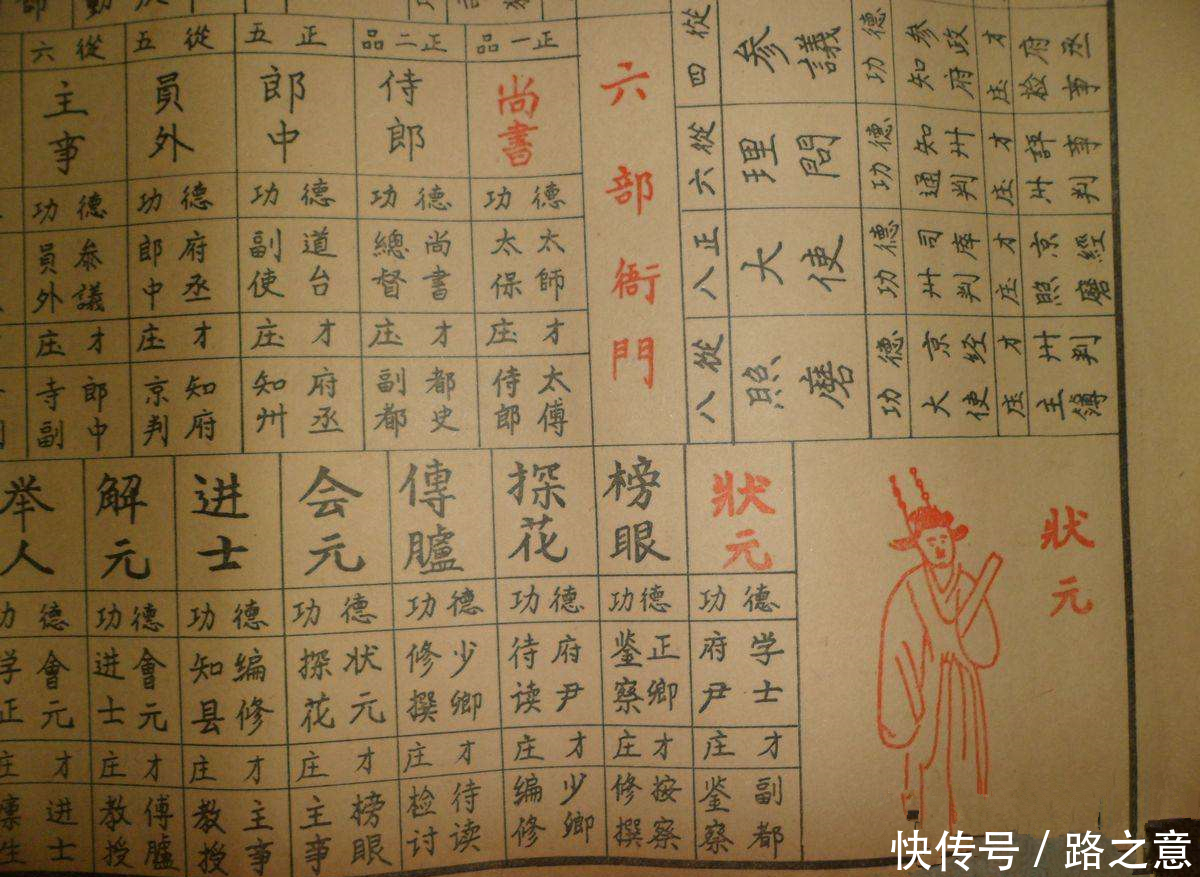 六部衙門
正一品
尚書
德功
太師
太保
才庄
太傅
侍郎
正二品
侍郎
德功
尚書
總督
才庄
都史
副都
正五
郎中
德功
道台
副使
才庄
府丞
知州
從五
員外
德功
府丞
郎中
才庄
知府
京判
從六
主事
德功
叅議
員外
才庄
郎中
寺副
從四
參議
德功
参政
知府
才庄
府丞
检事
從六
理問
德功
知州
通判
才庄
評事
州判
正八
大使
德功
司庫
州判
才庄
京經
照磨
從八
照磨
德功
京经
大使
才庄
州判
主簿
狀元
狀元
德功
学士
府尹
才庄
副都
鉴察
榜眼
德功
正卿
鉴察
才庄
按察
修撰
探花
德功
府尹
待读
才庄
少卿
编修
傳臚
德功
少卿
修撰
才庄
待读
检讨
会元
德功
状元
探花
才庄
榜眼
主事
进士
德功
编修
知县
才庄
主事
教授
解元
德功
會元
进士
才庄
傳臚
教授
举人
德功
會元
学正
才庄
进士
廩生
快传号 / 路之意